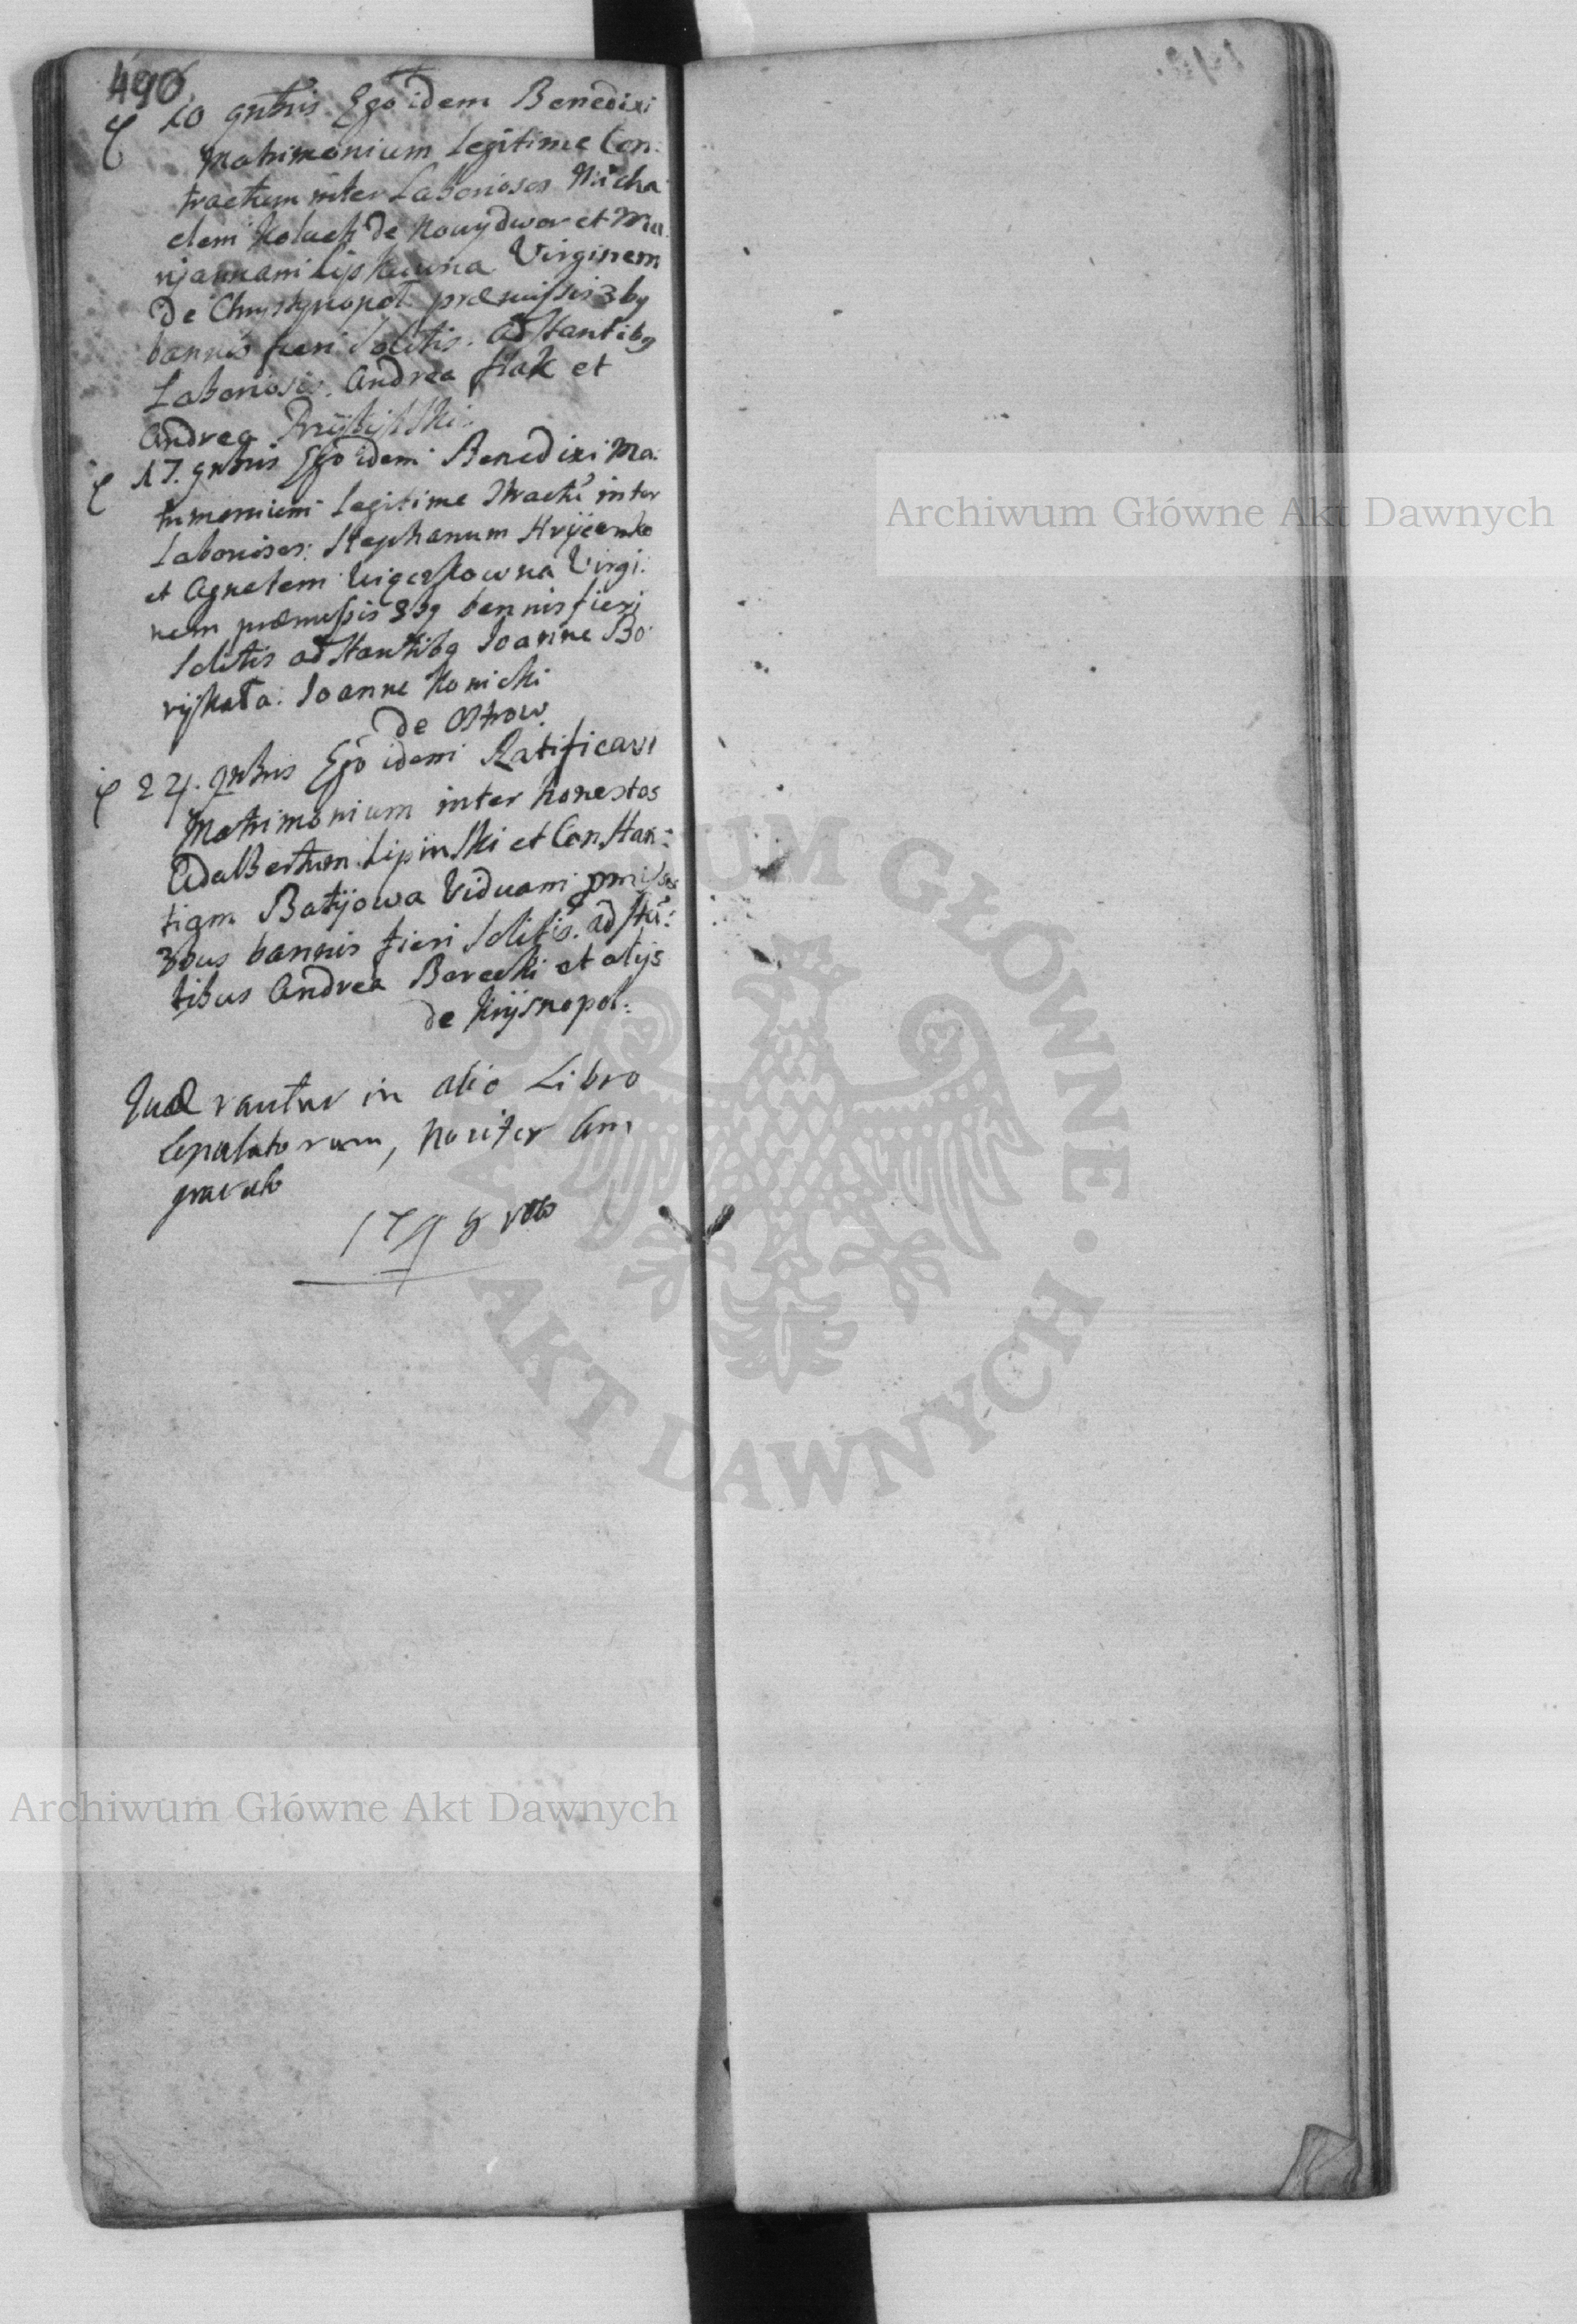 490
10 gnbris Ego idem Benedixi
Matrimonium Legitime Con:
tractum inter Laboriosos Micha
elem Koluch de Nowydwor et Ma
rjannam Lipkowna Virginem
De Chrystynopol præmissis 3bg
bannis fieri Solitis. adstantibg
Laboriosis. Andrea Hak et
Andrea
17. gnbris Ego idem Benedixi Ma:
trimonium Legitime inter
Laboriosos: Stephanum Hrycenko
et Agnetem Virgi:
nem præmissis 3bg bannis fieri
Solitis adstantibg Joanne Bo
ryskata. Joanne Konicki
de Ostrow.
24. gnbris Ego idem Ratificavi
Matrimonium inter honestos
Adalbertum Lipinski et Constan:
tiam Batyjowa Viduam pmissis
3bus bannis fieri Solitis. adstã:
tibus Andrea Borecki et alijs
de Krysnopol:
Quærantur in alio Libro
Copulatorum, noviter Com
parato
1798
Archiwum Główne Akt Dawnych
Archiwum Główne Akt Dawnych
ARCHIWUM GŁÓWNE · AKT DAWNYCH ·